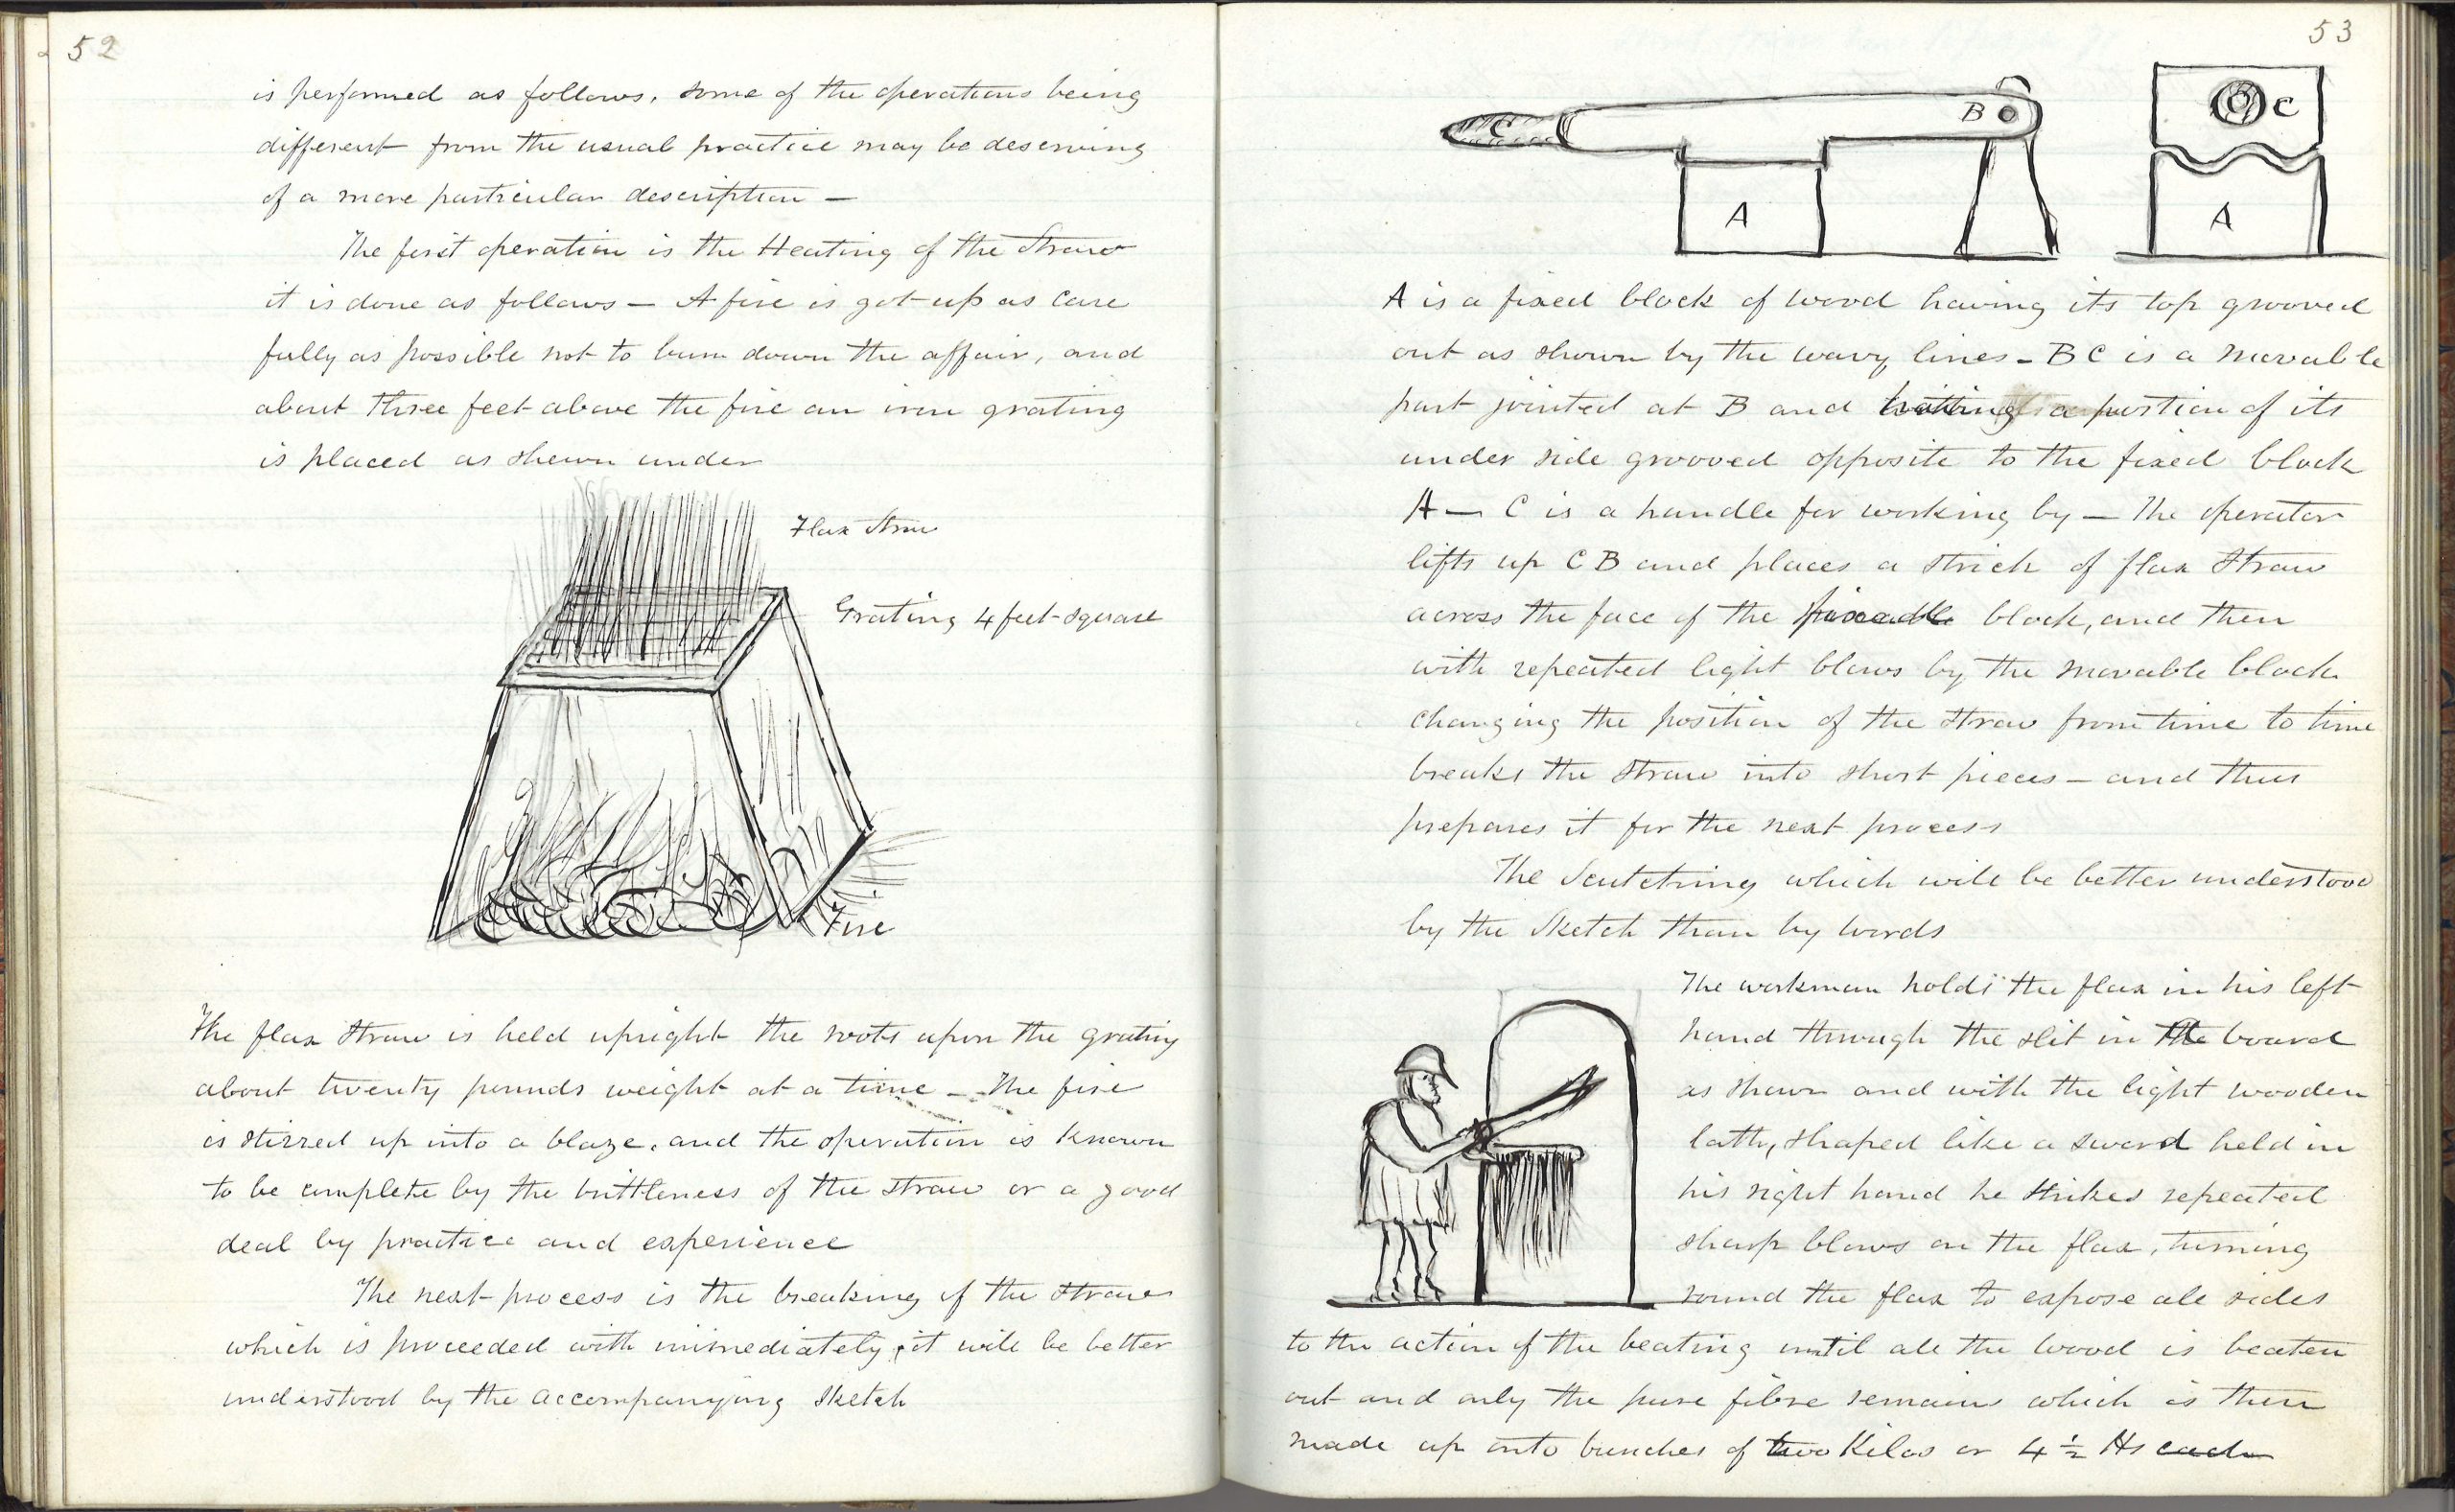 52
is performed as follows, some of the operations being
different from the usual practice may be deserving
of a more particular description —
The first operation is the Heating of the Straw
it is done as follows — A fire is got up as care
fully as possible not to burn down the affair, and
about three feet above the fire an iron grating
is placed as shewn under
Flax Straw
Grating 4 feet square
Fire
The flax straw is held upright the roots upon the grating
about twenty pounds weight at a time — The fire
is stirred up into a blaze, and the operation is known
to be complete by the brittleness of the straw or a good
deal by practice and experience
The next process is the breaking of the straw
which is proceeded with immediately, it will be better
understood by the accompanying sketch
53
C B C
A A
A is a fixed block of wood having its top grooved
out as shown by the wavy lines — B C is a movable
part jointed at B and having a portion of its
under side grooved opposite to the fixed block
A — C is a handle for working by — The operator
lifts up C B and places a strick of flax straw
across the face of the block, and then
with repeated light blows by the movable block
changing the position of the straw from time to time
breaks the straw into short pieces — and thus
prepares it for the next process
The Scutching which will be better understood
by the sketch than by words
The workman holds the flax in his left
hand through the slit in the board
as shown and with the light wooden
lath, shaped like a sword held in
his right hand he strikes repeated
sharp blows on the flax, turning
round the flax to expose all sides
to the action of the beating until all the wood is beaten
out and only the pure fibre remains which is then
made up into bunches of two Kilos or 4 ½ lbs each